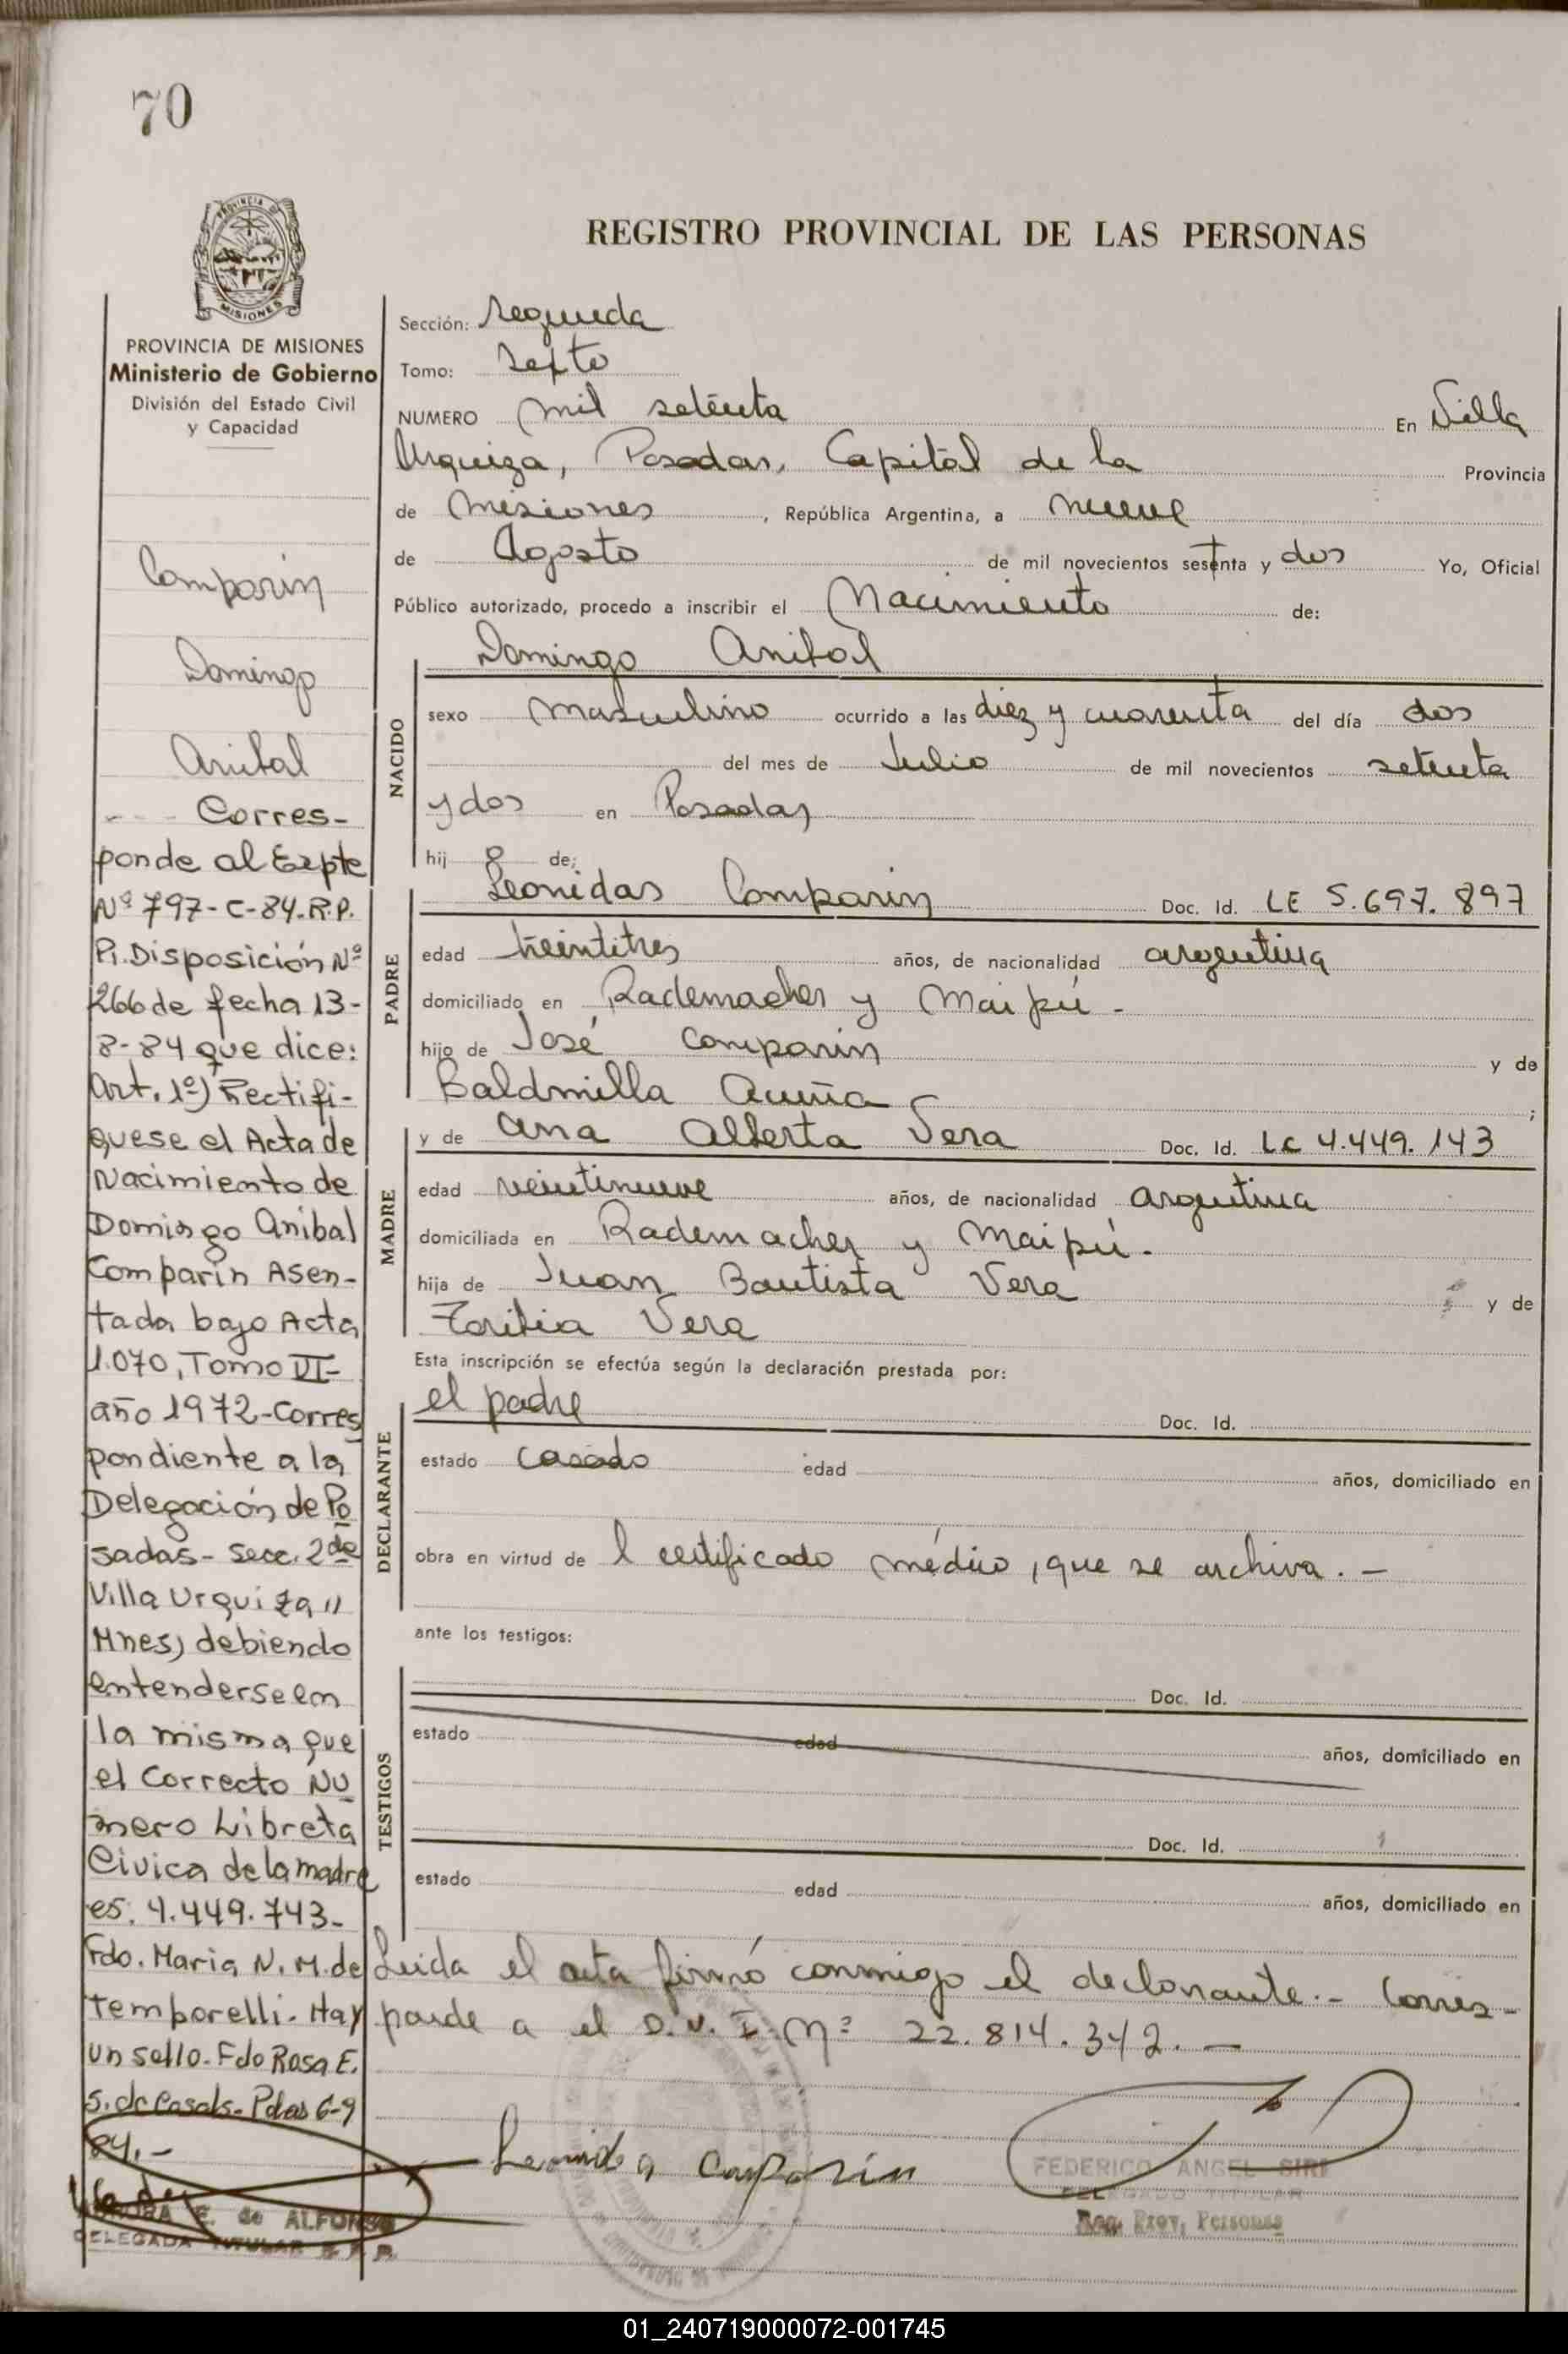 70
MISIONES
PROVINCIA DE MISIONES
Ministerio de Gobierno
División del Estado Civil
y Capacidad
Comparin
Domingo
Anibal
Corres-
ponde al Expte
Nº 797-C-84.R.P.
P. Disposición Nº
266 de fecha 13-
8-84 que dice:
Art. 1º) Rectifi-
quese el Acta de
Nacimiento de
Domingo Anibal
Comparin Asen-
tada bajo Acta
1.070, Tomo VI-
año 1972-Corres
pondiente a la
Delegación de Po
sadas- Secc. 2da
Villa Urquiza
Mnes) debiendo
entenderse en
la misma que
el Correcto Nú
mero Libreta
Civica de la madre
es: 4.449.743-
Fdo. Maria N. M. de
Temporelli. Hay
un sello. Fdo Rosa E.
S. de Casals- Pdas 6-9
84.-
E. de ALFONSO
DELEGADA TITULAR
REGISTRO PROVINCIAL DE LAS PERSONAS
Sección: segunda
Tomo: sexto
NUMERO mil setenta En Villa
Urquiza, Posadas, Capital de la Provincia
de Misiones, República Argentina, a nueve
de Agosto de mil novecientos setenta y dos Yo, Oficial
Público autorizado, procedo a inscribir el Nacimiento de:
Domingo Anibal
NACIDO
sexo masculino ocurrido a las diez y cuarenta del día dos
del mes de Julio de mil novecientos setenta
y dos en Posadas
hij o de:
PADRE
Leonidas Comparin Doc. Id. LE 5.697.897
edad treintitres años, de nacionalidad argentina
domiciliado en Rademacher y Maipú-
hijo de José Comparin y de
Baldmilla Acuña;
MADRE
y de Ana Alberta Vera Doc. Id. LC 4.449.143
edad veintinueve años, de nacionalidad argentina
domiciliada en Rademacher y Maipú.
hija de Juan Bautista Vera y de
Toribia Vera
Esta inscripción se efectúa según la declaración prestada por:
DECLARANTE
el padre Doc. Id.
estado casado edad años, domiciliado en
obra en virtud de l certificado médico, que se archiva.-
ante los testigos:
TESTIGOS
Doc. Id.
estado edad años, domiciliado en
Doc. Id.
estado edad años, domiciliado en
Leida el acta firmó conmigo el declarante.- Corres-
ponde a el D.N.I. Nº 22.814.342.-
Leonidas Comparin
FEDERICO ANGEL SIRI
DELEGADO TITULAR
Reg. Prov. Personas
01_240719000072-001745